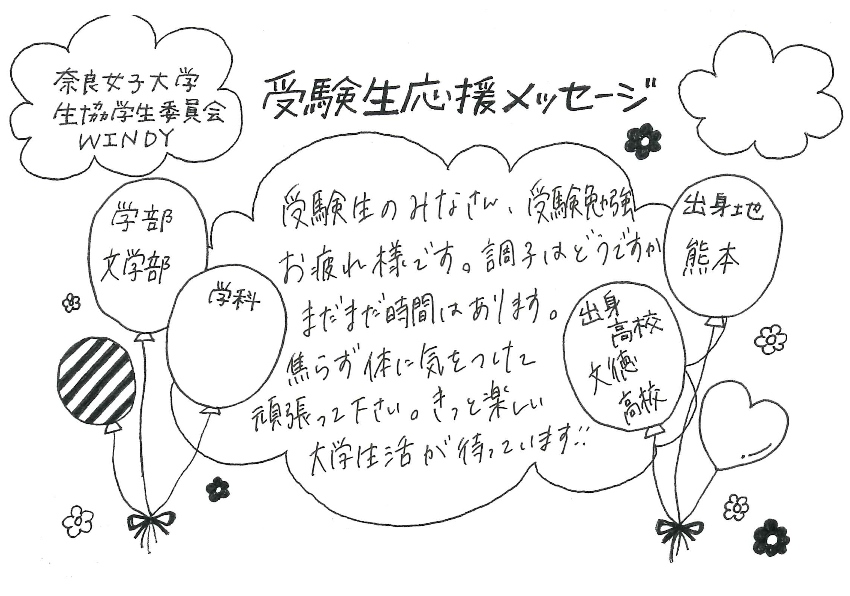 奈良女子大学
生協学生委員会
WINDY
受験生応援メッセージ
学部
文学部
学科
受験生のみなさん、受験勉強
お疲れ様です。調子はどうですか
まだまだ時間はあります。
焦らず体に気をつけて
頑張って下さい。きっと楽しい
大学生活が待っています!!
出身地
熊本
出身
高校
文徳
高校